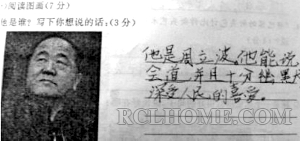 阅读图画(7分)
他是谁?写下你想说的话:(3分)
他是周立波,他能说
会道,并且十分幽默,
深受人民的喜爱。
RCLHOME.COM